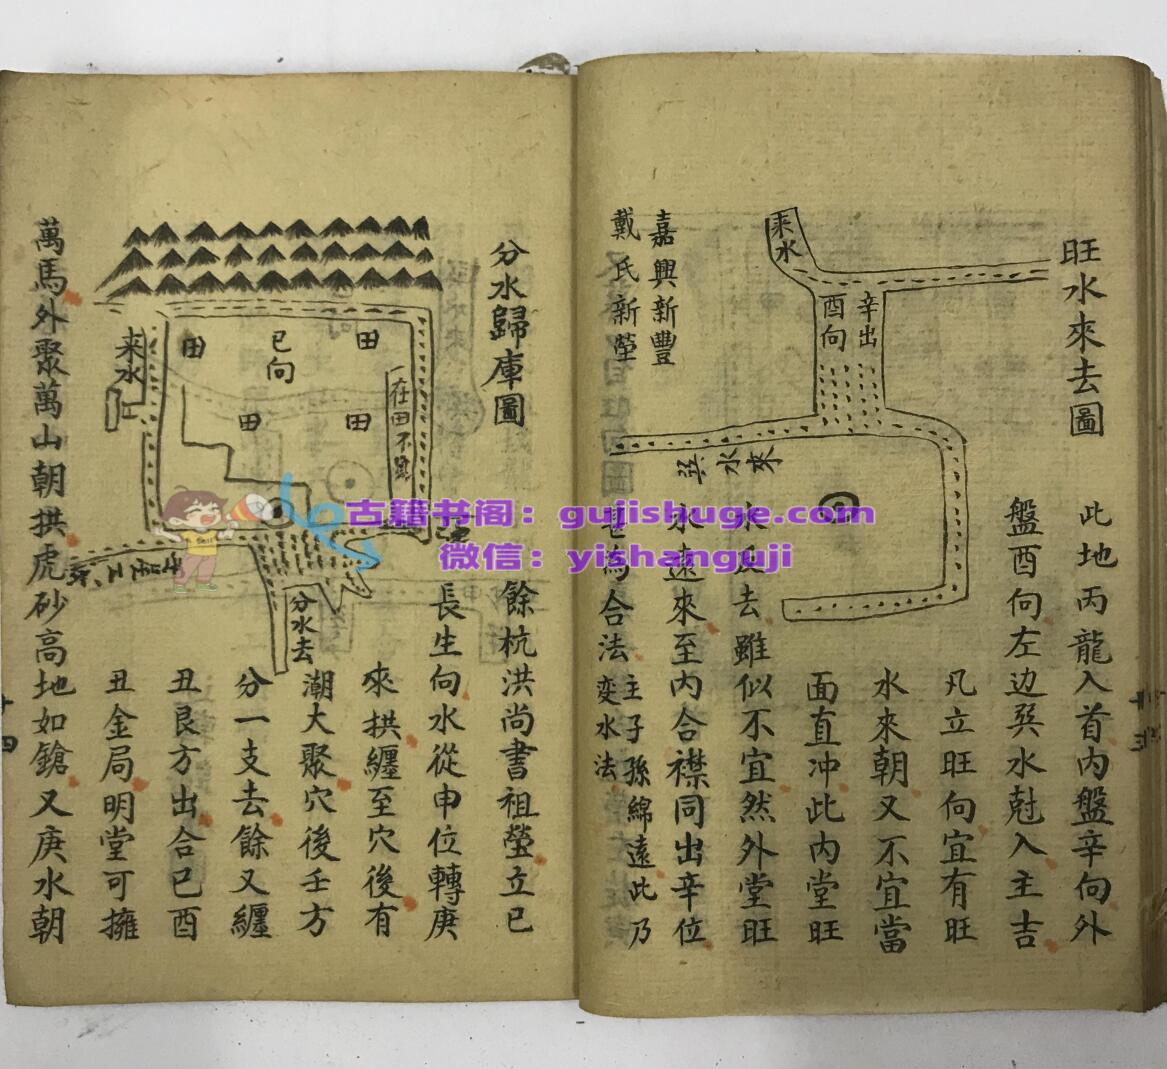 旺水來去圖
来水
辛出
酉向
巽水來
嘉興新豐
戴氏新塋
此地丙龍入首内盤辛向外
盤酉向左边巽水尅入主吉
凡立旺向宜有旺
水來朝又不宜當
面直冲此内堂旺
水反去雖似不宜然外堂旺
水遠來至内合襟同出辛位
為合法主子孫綿遠此乃
变水法
分水歸庫圖
来水
田
巳向
田
田
田
在田不
分水去
餘杭洪尚書祖塋立巳
長生向水從申位轉庚
來拱纏至穴後有
潮大聚穴後壬方
分一支去餘又纏
丑艮方出合巳酉
丑金局明堂可擁
萬馬外聚萬山朝拱虎砂高地如鎗又庚水朝
十四
古籍书阁：gujishuge.com
微信：yishanguji